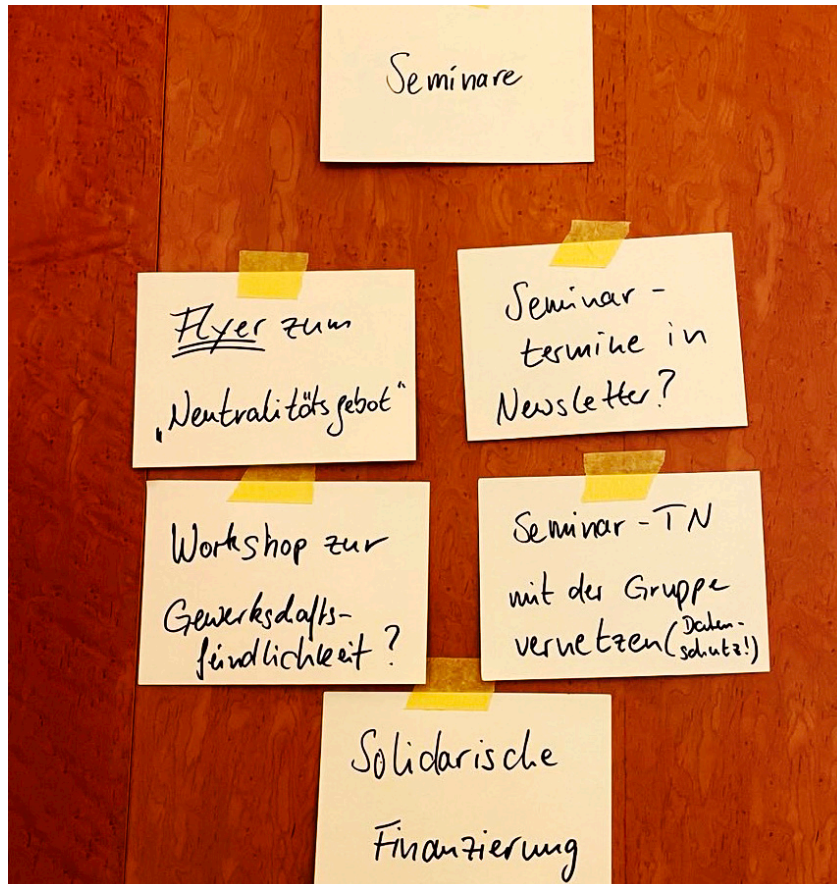 Seminare
Flyer zum
„Neutralitätsgebot“
Seminar-
termine in
Newsletter?
Workshop zur
Gewerkschafts-
feindlichkeit?
Seminar-TN
mit der Gruppe
vernetzen (Daten-
schutz!)
Solidarische
Finanzierung